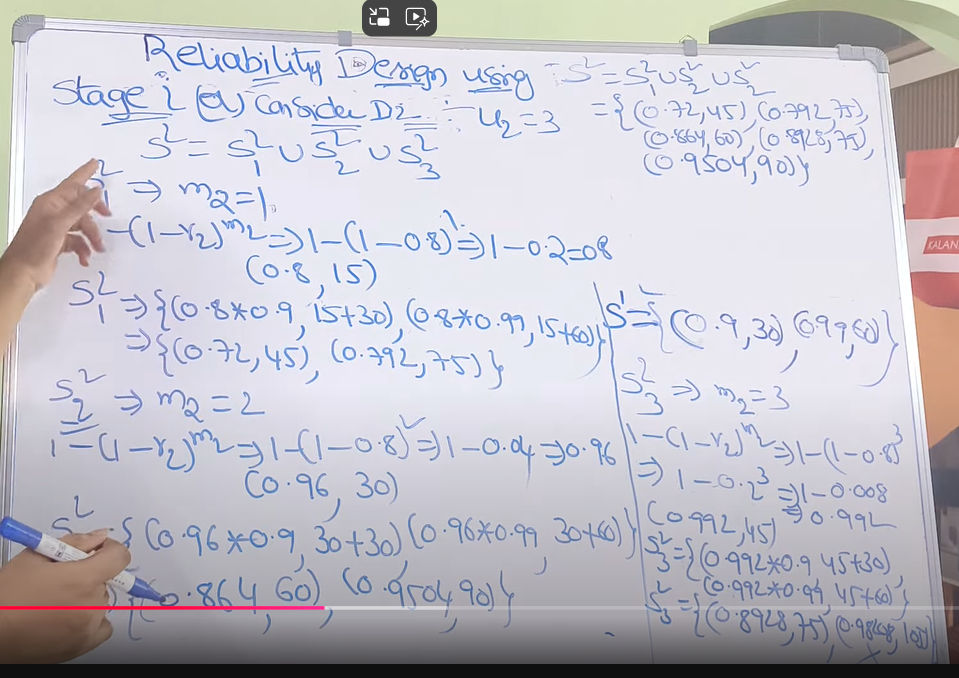 Reliability Design using
Stage 2 (or) Consider D2 ∴ u₂=3
S² = S²₁ ∪ S²₂ ∪ S²₃
⇒ m₂=1
-(1-r₂)^m₂ ⇒ 1-(1-0.8)¹ ⇒ 1-0.2=08
(0.8, 15)
S²₁ ⇒ {(0.8*0.9, 15+30), (0.8*0.99, 15+60)}
⇒ {(0.72, 45), (0.792, 75)}
S²₂ ⇒ m₂=2
1-(1-r₂)^m₂ ⇒ 1-(1-0.8)² ⇒ 1-0.04 ⇒ 0.96
(0.96, 30)
S² {(0.96*0.9, 30+30) (0.96*0.99, 30+60)}
{(0.864, 60), (0.9504, 90)}
S² = S²₁ ∪ S²₂ ∪ S²₂
= {(0.72, 45), (0.792, 75),
(0.864, 60), (0.8928, 75),
(0.9504, 90)}
S¹ = {(0.9, 30), (099, 60)}
S²₃ ⇒ m₂=3
1-(1-r₂)^m₂ ⇒ 1-(1-0.8)³
⇒ 1-0.2³ ⇒ 1-0.008
⇒ 0.992
(0.992, 45)
S²₃ = {(0.992*0.9, 45+30),
(0.992*0.99, 45+60)}
S²₃ = {(0.8928, 75),
KALAN